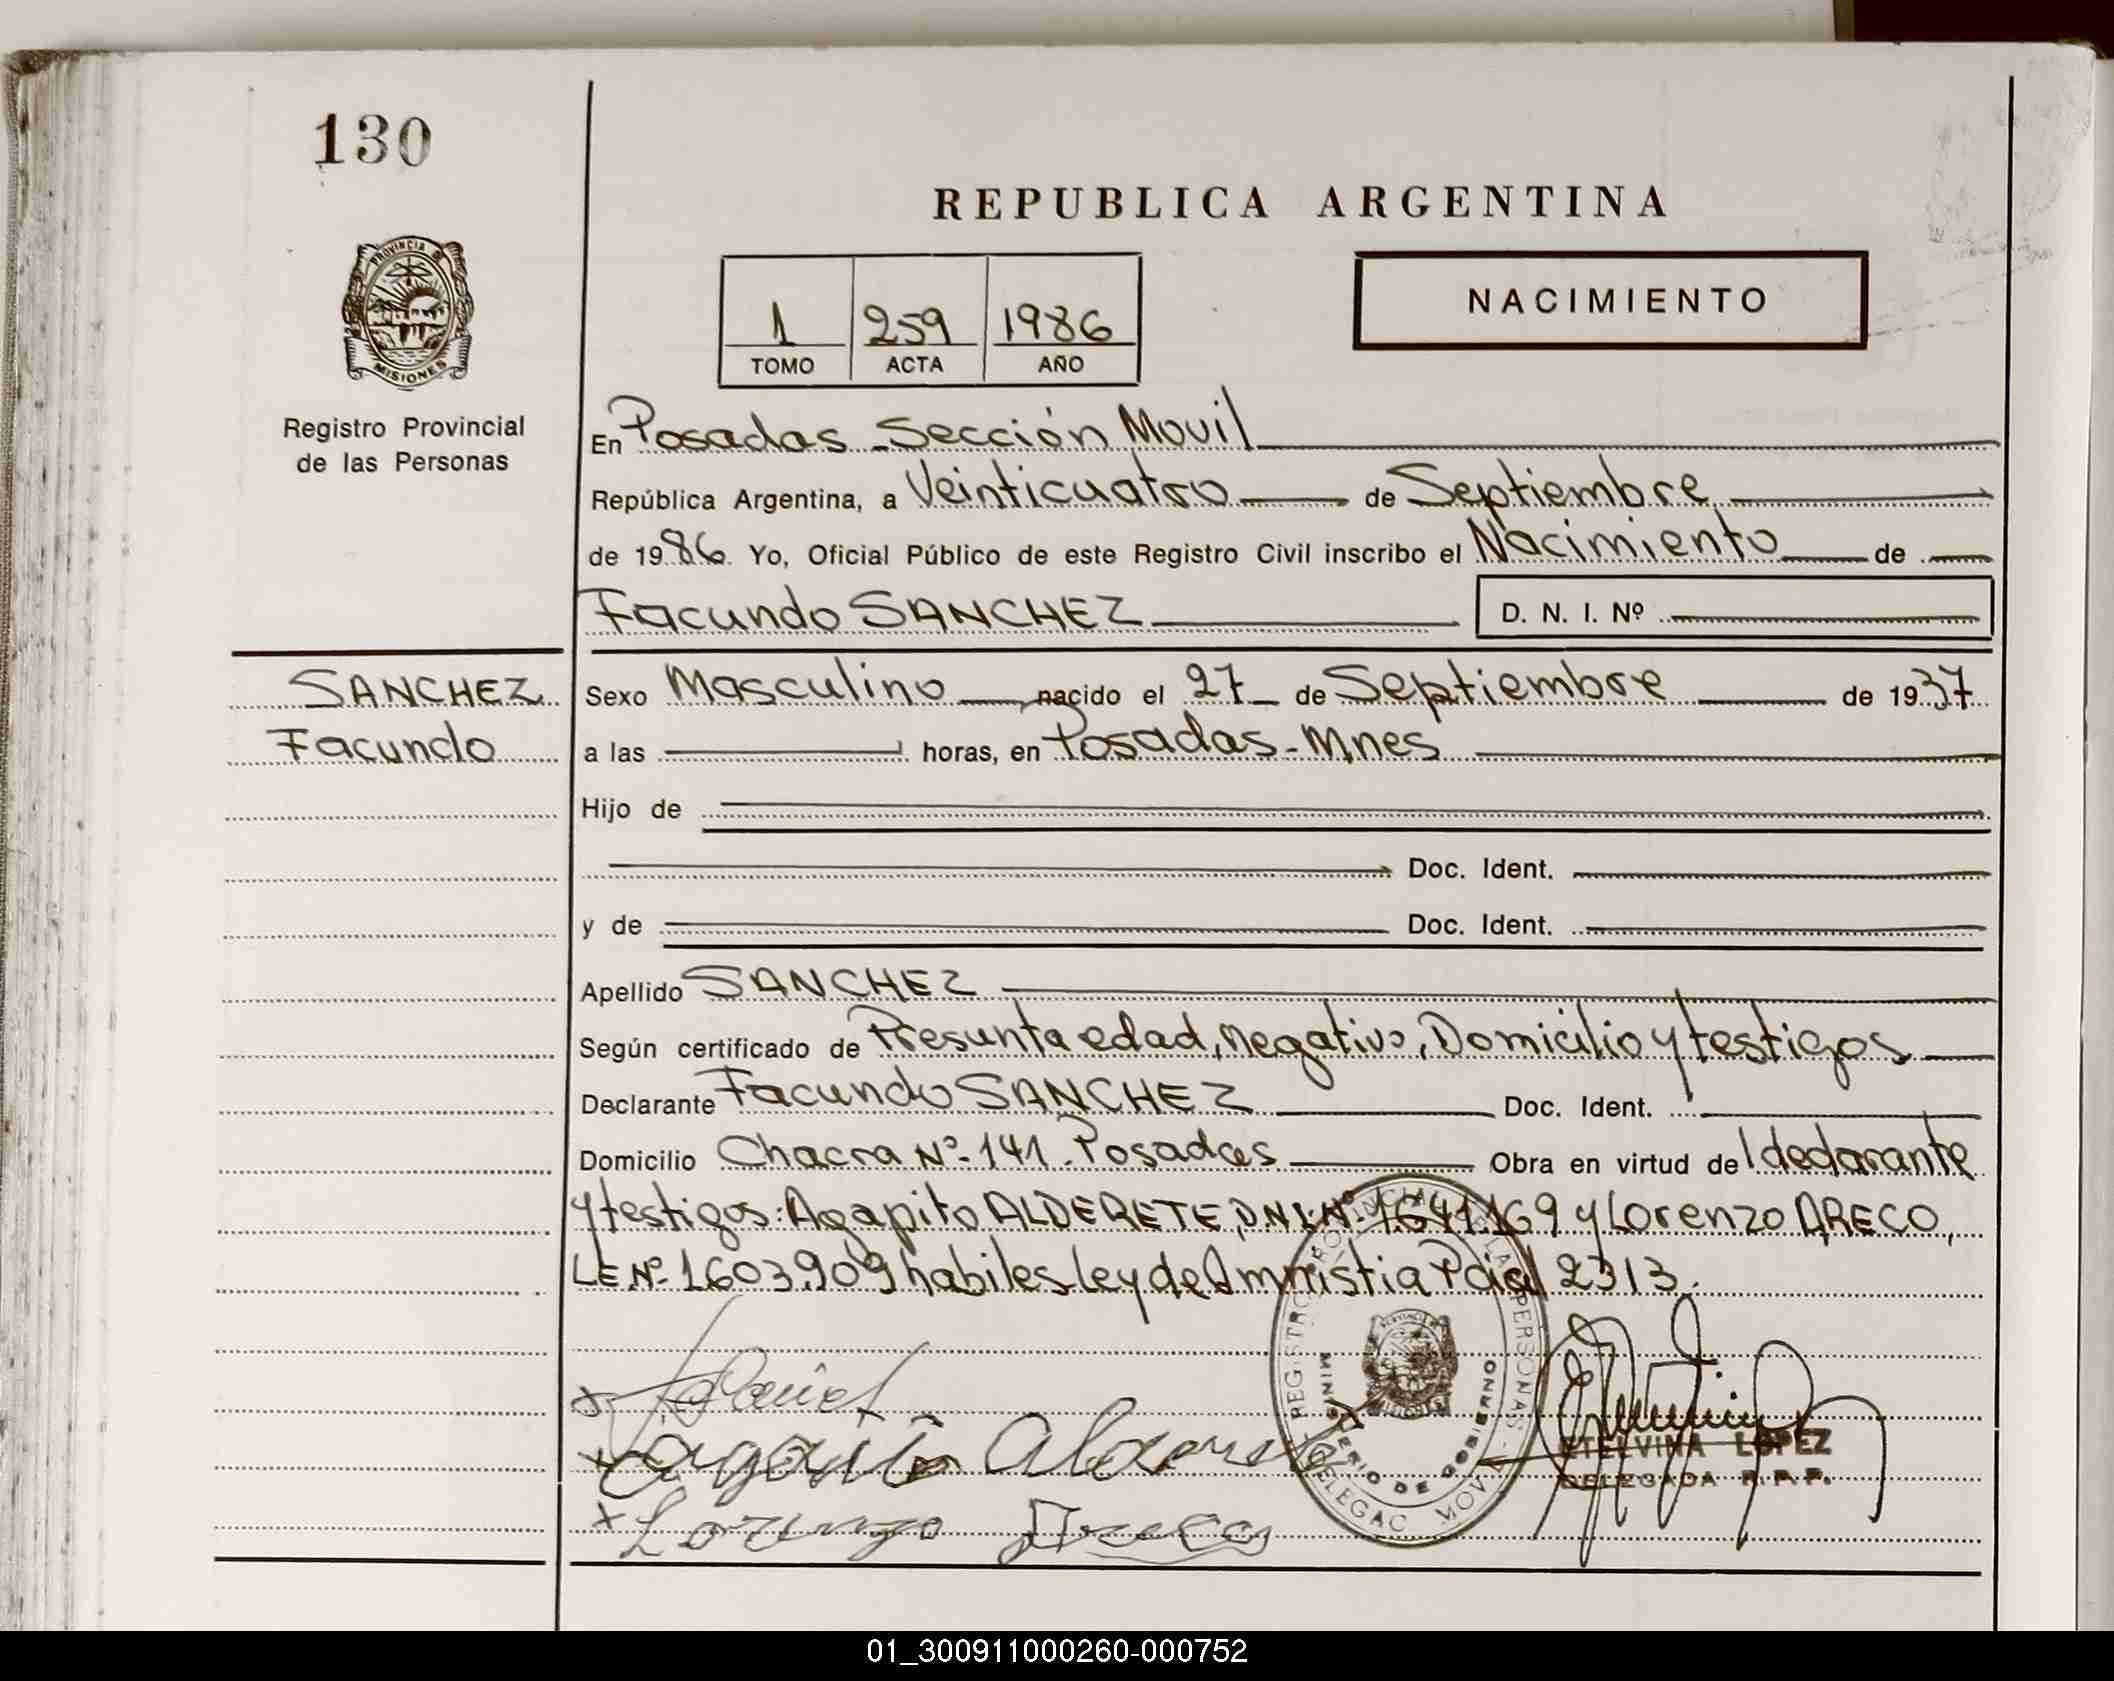 130
REPUBLICA ARGENTINA
PROVINCIA DE
MISIONES
Registro Provincial
de las Personas
1 259 1986
TOMO ACTA AÑO
NACIMIENTO
En Posadas - Sección Movil
República Argentina, a Veinticuatro de Septiembre
de 1986. Yo, Oficial Público de este Registro Civil inscribo el Nacimiento de
Facundo SANCHEZ D. N. I. Nº
SANCHEZ
Facundo
Sexo Masculino nacido el 27 de Septiembre de 1937
a las horas, en Posadas - Mnes
Hijo de
Doc. Ident.
y de Doc. Ident.
Apellido SANCHEZ
Según certificado de Presunta edad, negativo, Domicilio y testigos
Declarante Facundo SANCHEZ Doc. Ident.
Domicilio Chacra Nº-141. Posadas Obra en virtud del declarante
y testigos: Agapito ALDERETE, D.N.I.Nº. 1641.169 y Lorenzo ARECO,
LE.Nº-1603.909 habiles-ley de Amnistia Pcial 2313.
REGISTRO PROVINCIAL DE LAS PERSONAS
MINISTERIO DE GOBIERNO
DELEGAC MOVIL
Lorenzo Areco
ETELVINA LOPEZ
DELEGADA R.P.P.
01_300911000260-000752